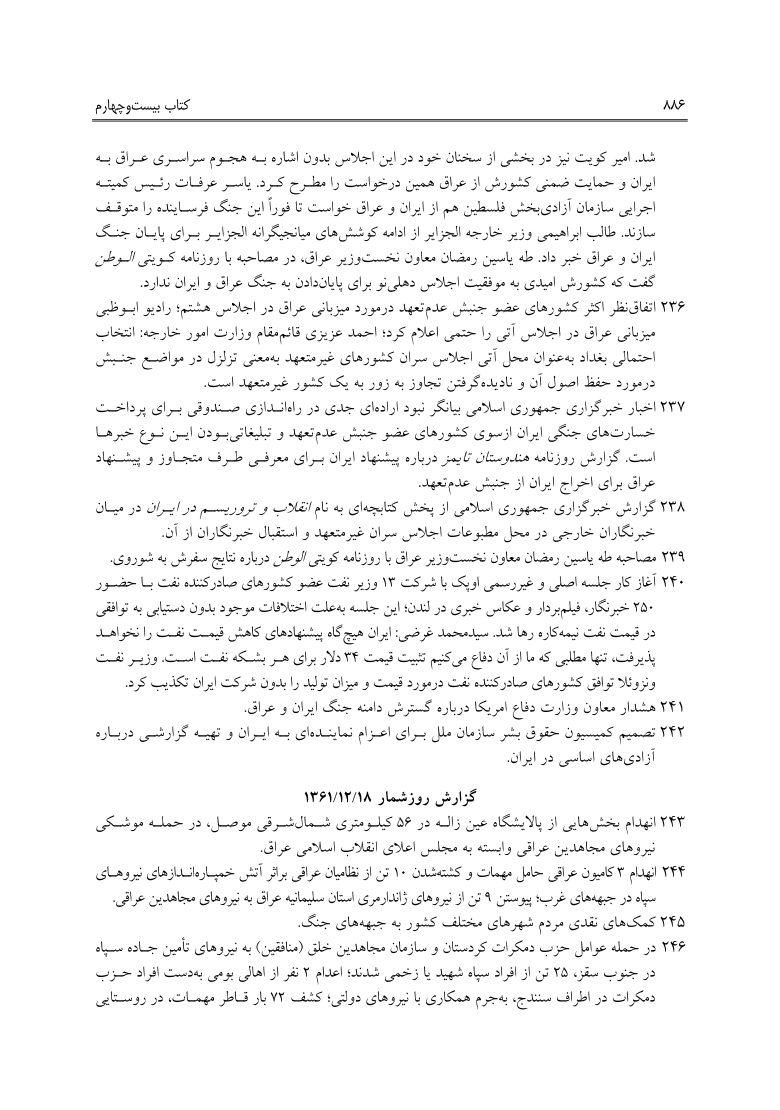 ۸۸۶ کتاب بیست‌وچهارم
شد. امیر کویت نیز در بخشی از سخنان خود در این اجلاس بدون اشاره به هجوم سراسری عراق به
ایران و حمایت ضمنی کشورش از عراق همین درخواست را مطرح کرد. یاسر عرفات رئیس کمیته
اجرایی سازمان آزادی‌بخش فلسطین هم از ایران و عراق خواست تا فوراً این جنگ فرساینده را متوقف
سازند. طالب ابراهیمی وزیر خارجه الجزایر از ادامه کوشش‌های میانجیگرانه الجزایر برای پایان جنگ
ایران و عراق خبر داد. طه یاسین رمضان معاون نخست‌وزیر عراق، در مصاحبه با روزنامه کویتی الوطن
گفت که کشورش امیدی به موفقیت اجلاس دهلی‌نو برای پایان‌دادن به جنگ عراق و ایران ندارد.
۲۳۶ اتفاق‌نظر اکثر کشورهای عضو جنبش عدم‌تعهد درمورد میزبانی عراق در اجلاس هشتم؛ رادیو ابوظبی
میزبانی عراق در اجلاس آتی را حتمی اعلام کرد؛ احمد عزیزی قائم‌مقام وزارت امور خارجه: انتخاب
احتمالی بغداد به‌عنوان محل آتی اجلاس سران کشورهای غیرمتعهد به‌معنی تزلزل در مواضع جنبش
درمورد حفظ اصول آن و نادیده‌گرفتن تجاوز به زور به یک کشور غیرمتعهد است.
۲۳۷ اخبار خبرگزاری جمهوری اسلامی بیانگر نبود اراده‌ای جدی در راه‌اندازی صندوقی برای پرداخت
خسارت‌های جنگی ایران ازسوی کشورهای عضو جنبش عدم‌تعهد و تبلیغاتی‌بودن این نوع خبرها
است. گزارش روزنامه هندوستان تایمز درباره پیشنهاد ایران برای معرفی طرف متجاوز و پیشنهاد
عراق برای اخراج ایران از جنبش عدم‌تعهد.
۲۳۸ گزارش خبرگزاری جمهوری اسلامی از پخش کتابچه‌ای به نام انقلاب و تروریسم در ایران در میان
خبرنگاران خارجی در محل مطبوعات اجلاس سران غیرمتعهد و استقبال خبرنگاران از آن.
۲۳۹ مصاحبه طه یاسین رمضان معاون نخست‌وزیر عراق با روزنامه کویتی الوطن درباره نتایج سفرش به شوروی.
۲۴۰ آغاز کار جلسه اصلی و غیررسمی اوپک با شرکت ۱۳ وزیر نفت عضو کشورهای صادرکننده نفت با حضور
۲۵۰ خبرنگار، فیلم‌بردار و عکاس خبری در لندن؛ این جلسه به‌علت اختلافات موجود بدون دستیابی به توافقی
در قیمت نفت نیمه‌کاره رها شد. سیدمحمد غرضی: ایران هیچ‌گاه پیشنهادهای کاهش قیمت نفت را نخواهد
پذیرفت، تنها مطلبی که ما از آن دفاع می‌کنیم تثبیت قیمت ۳۴ دلار برای هر بشکه نفت است. وزیر نفت
ونزوئلا توافق کشورهای صادرکننده نفت درمورد قیمت و میزان تولید را بدون شرکت ایران تکذیب کرد.
۲۴۱ هشدار معاون وزارت دفاع امریکا درباره گسترش دامنه جنگ ایران و عراق.
۲۴۲ تصمیم کمیسیون حقوق بشر سازمان ملل برای اعزام نماینده‌ای به ایران و تهیه گزارشی درباره
آزادی‌های اساسی در ایران.
گزارش روزشمار ۱۳۶۱/۱۲/۱۸
۲۴۳ انهدام بخش‌هایی از پالایشگاه عین زاله در ۵۶ کیلومتری شمال‌شرقی موصل، در حمله موشکی
نیروهای مجاهدین عراقی وابسته به مجلس اعلای انقلاب اسلامی عراق.
۲۴۴ انهدام ۳ کامیون عراقی حامل مهمات و کشته‌شدن ۱۰ تن از نظامیان عراقی براثر آتش خمپاره‌اندازهای نیروهای
سپاه در جبهه‌های غرب؛ پیوستن ۹ تن از نیروهای ژاندارمری استان سلیمانیه عراق به نیروهای مجاهدین عراقی.
۲۴۵ کمک‌های نقدی مردم شهرهای مختلف کشور به جبهه‌های جنگ.
۲۴۶ در حمله عوامل حزب دمکرات کردستان و سازمان مجاهدین خلق (منافقین) به نیروهای تأمین جاده سپاه
در جنوب سقز، ۲۵ تن از افراد سپاه شهید یا زخمی شدند؛ اعدام ۲ نفر از اهالی بومی به‌دست افراد حزب
دمکرات در اطراف سنندج، به‌جرم همکاری با نیروهای دولتی؛ کشف ۷۲ بار قاطر مهمات، در روستایی